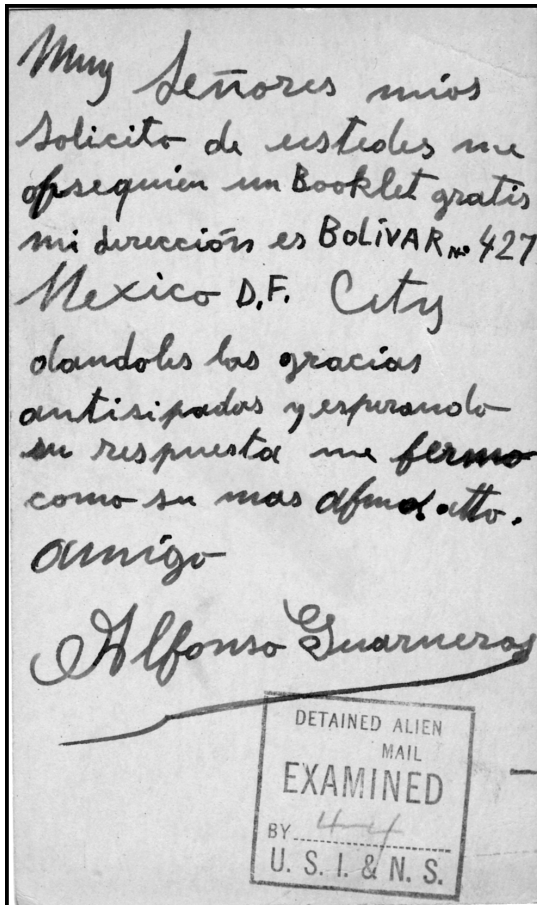 Muy Señores mios
solicito de ustedes me
opsequien un Booklet gratis
mi dirección es BOLÍVAR Nº 427
Mexico D.F. City
dandoles las gracias
antisipadas y esperando
su respuesta me fermo
como su mas afmo. atto.
amigo
Alfonso Guarneros
DETAINED ALIEN
MAIL
EXAMINED
BY 44
U. S. I. & N. S.